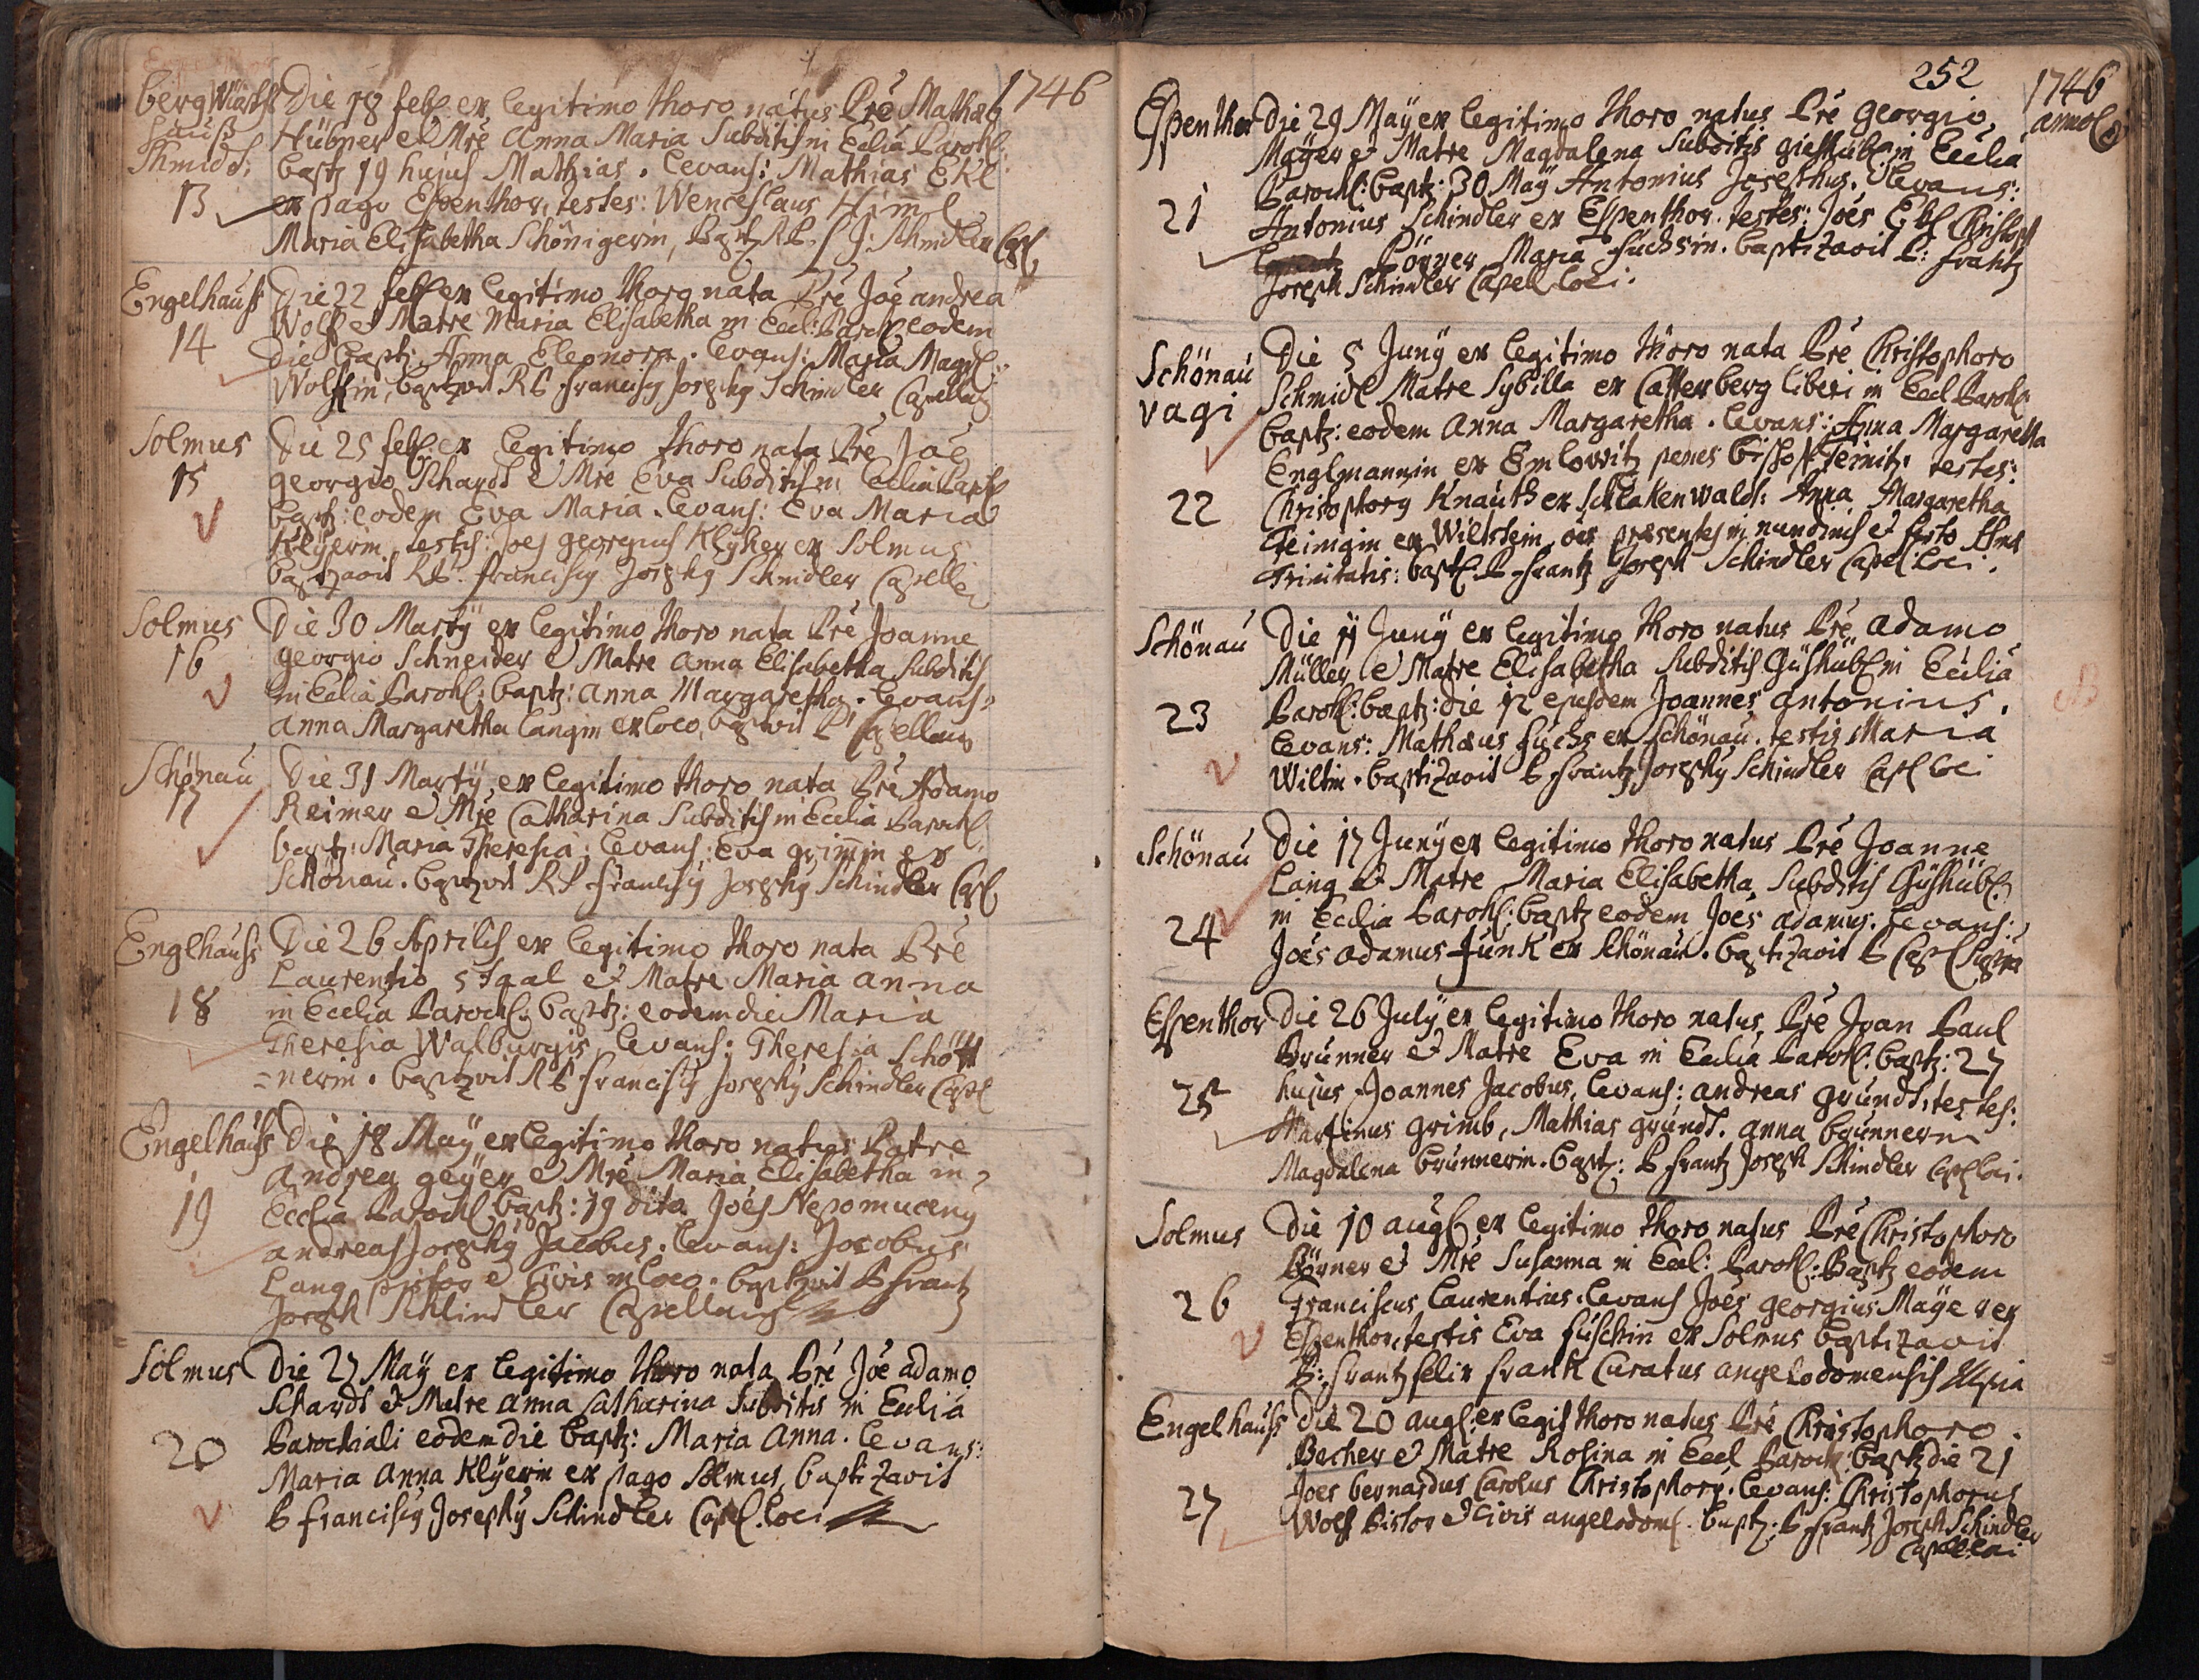 1746
Berg Wirths
Hauß
Schmidt:
13
Die 18 feb: ex legitimo thoro natus Pre Mathæo
Hübner et Mre Anna Maria Subditis in Ecclia Paroch:
baptz 19 hujus Mathias. levans: Mathias Ekl
ex pago Espenthor, testes: Wenceslaus Himl
Maria Elisabetha Schönigerin, Baptz RP. F J: Schindler Capl
Engelhauß
14
Die 22 feb: ex legitimo thoro nata Pre Joe andrea
Wolf et Matre Maria Elisabetha in Eccl: Paroch: eodem
die baptz: Anna Eleonora. levans: Maria Magdl:
Wolfin, baptzvit RP Franciscq Josephq Schindler Capellaq
Solmus
15
Die 25 feb: ex legitimo thoro nata Pre Joe
georgio Schardt et Mre Eva Subditis in Ecclia Paroch
baptz: eodem Eva Maria. levans: Eva Maria
Klyerin, testis: Joes georgius Klyher ex Solmus
baptzavit RP. Franciscq Josephq Schindler Capella
Solmus
16
Die 30 Martÿ ex legitimo thoro nata Pre Joanne
georgio Schneider et Matre Anna Elisabetha Subditis
in Ecclia Paroch: baptz: Anna Margaretha. levans:
Anna Margaretha Langin ex loco, baptzvit P Capellanq
Schönau
17
Die 31 Martÿ ex legitimo thoro nata Pre Adamo
Reimer et Mre Catharina Subditis in Ecclia Paroch
baptz: Maria Theresia; levans: Eva grimin ex
Schönau. baptzvit RP Franciscq Josephq Schindler Capl
Englhauß
18
Die 26 Aprilis ex legitimo thoro nata Pre
Laurentio Stgal et Matre Maria Anna
in Ecclia Paroch: baptz: eodem die Maria
Theresia Walburgis, levans: Theresia Schött
=nerin. baptzvit RP Franciscq Josephq Schindler Capl
Engelhauß
19
Die 18 Maÿ ex legitimo thoro natus Patre
Andrea geÿer et Mre Maria Elisabetha in
Ecclia Paroch: baptz: 19 dito Joes Nepomucenq
andreas Josephq Jacobus. levans: Jacobus
Lang pistor et Civis in loco. baptzvit P Frantz
Joseph Schindler Capellanq
Solmus
20
Die 27 Maÿ ex legitimo thoro nata Pre Joe adamo
Schardt et Matre Anna Catharina Subditis in Ecclia
Parochiali eodem die baptz: Maria Anna. levans:
Maria Anna Klÿerin ex pago Solmus, baptizavit
P Franciscq Josephq Schindler Capl: loci
252
1746
anno
Espenthor
21
Die 29 Maÿ ex legitimo thoro natus Pre georgio
Maÿer et Matre Magdalena Subditis gieshübl: in Ecclia
Paroch: baptz: 30 Maÿ Antonius Josephus. levans:
Antonius Schindler ex Espenthor. testes: Joes Ekl Christoph
Börner Maria Fuchsin. baptizavit P: Frantz
Joseph Schindler Capell loci.
Schönau
vagi
22
Die 5 Junÿ ex legitimo thoro nata Pre Christophoro
Schmidl Matre Sybilla ex Catterberg liberi in Eccl Paroch:
baptz: eodem Anna Margaretha. levans: Anna Margaretha
Englmannin ex Emlowitz penes bischof Teinitz. testes:
Christophorq Knauth ex Schlakenwaldt: Anna Margaretha
Feinigin ex Wiltstein, oes præsentes in nundinis et festo Ssmæ
Trinitatis: baptz: P Frantz Joseph Schindler Capel loci.
Schönau
23
Die 11 Junÿ ex legitimo thoro natus Pre adamo
Müller et Matre Elisabetha Subditis Güshübl: in Ecclia
Paroch: baptz: die 12 ejusdem Joannes Antonius.
levans: Mathæus Fuchs ex Schönau. testis Maria
Wiltin. baptizavit P Frantz Josephq Schindler Capl loci
Schönau
24
Die 17 Junÿ ex legitimo thoro natus Pre Joanne
Lang et Matre Maria Elisabetha Subditis Güshübl:
in Ecclia Paroch: baptz eodem Joes adamus. levans:
Joes adamus Funk ex Schönau. baptizavit P Capl Supra
Espenthor
25
Die 26 Julÿ ex legitimo thoro natus Pre Joan Paul
Brunner et Matre Eva in Ecclia Paroch: baptz: 27
hujus Joannes Jacobus, levans: andreas grundt, testes:
Martinus grimb, Mathias grundt. anna brunnerin
Magdalena brunnerin. baptz: P Frantz Joseph Schindler Capl loci.
Solmus
26
Die 10 aug: ex legitimo thoro natus Pre Christophoro
Börner et Mre Susanna in Eccl: Paroch: Baptz eodem
Franciscus Laurentius. levans Joes georgius Maÿer ex
Espenthor, testis Eva Fuschin ex Solmus baptizavit
P: Frantz felix Frank Curatus angelodomensis Mpia
Engelhauß
27
Die 20 aug: ex legit thoro natus Pre Christophoro
Becher et Matre Rosina in Eccl Paroch: baptz die 21
Joes bernardus Carolus Christophorq. levans: Christophorus
Wolf Pistor et Civis angelodom: baptz: P Frantz Joseph Schindler
Capl loci